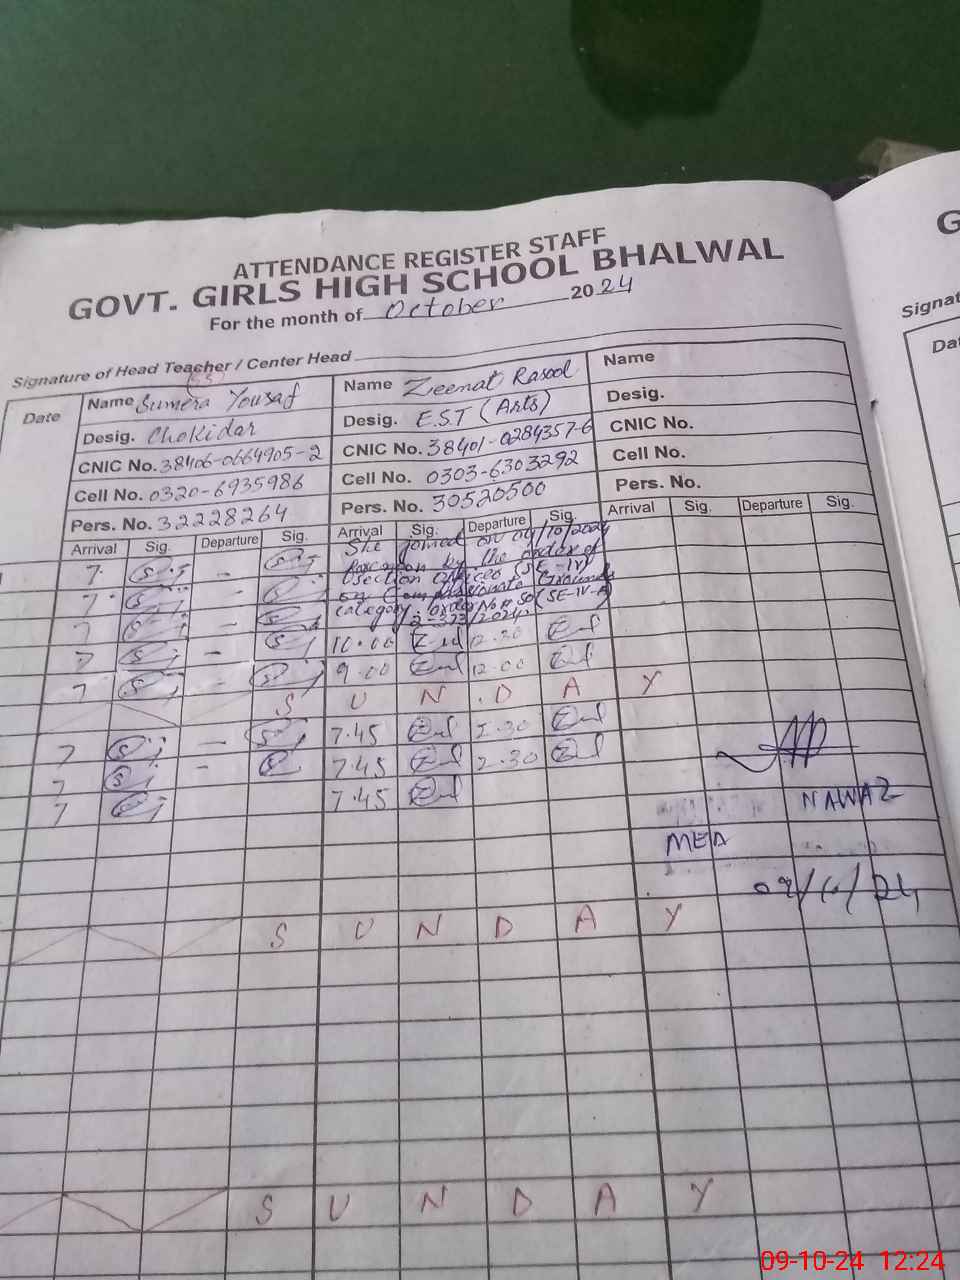 ATTENDANCE REGISTER STAFF
GOVT. GIRLS HIGH SCHOOL BHALWAL
For the month of October 2024
Signature of Head Teacher / Center Head
Date
Name Sumera Yousaf
Desig. Chokidar
CNIC No. 38406-0664905-2
Cell No. 0320-6935986
Pers. No. 32228264
Arrival Sig. Departure Sig.
Name Zeenat Rasool
Desig. E.S.T (Arts)
CNIC No. 38401-0284357-6
Cell No. 0303-6303292
Pers. No. 30520500
Arrival Sig. Departure Sig.
Name
Desig.
CNIC No.
Cell No.
Pers. No.
Arrival Sig. Departure Sig.
She joined on 04/10/2024
by the order of
Section Officer (SE-IV)
on Compassionate Grounds
category order No. SO (SE-IV-A)
2-373/2024
7 -
7 -
7 -
7 - 10.00 12.30
7 - 9.00 12.00
S U N D A Y
7 - 7.45 2.30
7 - 7.45 2.30
7 7.45
NAWAZ
MEA
S U N D A Y
S U N D A Y
G
Signat
Da
09-10-24 12:24